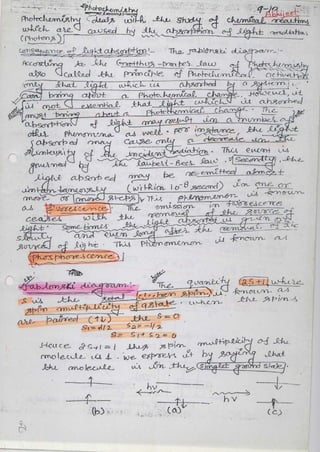 Photochemistry
Photochemistry deals with the study of chemical reactions
which are caused by the absorption of light radiation
(Photons)
Consequence of light absorption:- The Jablonski diagram -
According to the Grotthus-Draper law of Photochemistry
also called the principle of Photochemical activation
only that light which is absorbed by a system,
can bring about a Photochemical change. However, it
is not essential that light which is absorbed
must bring about a Photochemical change. The
absorption of light may result in a number of
other phenomena as well. For instance, the light
absorbed may cause only decrease in the
intensity of the incident radiation. This event is
governed by the Lambert-Beer law. Secondly, the
light absorbed may be re-emitted almost
instantaneously (within 10⁻⁸ second) in one or
more steps. This phenomenon is known
as fluorescence. The emission in fluorescence
ceases with the removal of the source of
light. Sometimes the light absorbed is given out
slowly and even long after the removal of the
source of light. This phenomenon is known as
Phosphorescence.
Jablonski diagram:- The quantity (2S+1) where
S is the total electron spin, is known as
the spin multiplicity of a state. when the spins
are paired (↑↓) the S=0
S₁=+1/2 S₂=-1/2
S= S₁+S₂=0
Hence 2S+1=1 thus spin multiplicity of the
molecule is 1. We express it by saying that
the molecule is in the singlet ground state.
hν hν
(b) (a) (c)